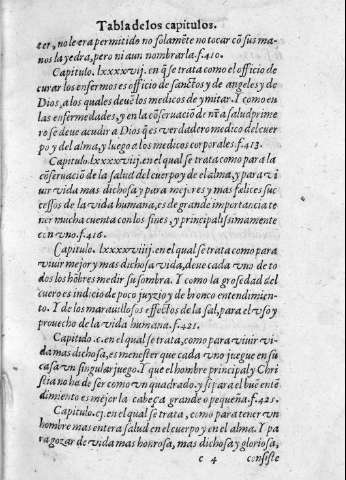 Tabla de los capitulos.
cer, no le era permitido no solamẽte no tocar cõ sus ma-
nos la yedra, pero ni aun nombrarla. f.410.
Capitulo. lxxxxvij. en q̃ se trata como el officio de
curar los enfermos es officio de sanctos y de angeles y de
Dios, a los quales deuẽ los medicos de ymitar. I como en
las enfermedades, y en la cõseruaciõ de nr̃a salud prime
ro se deue acudir a Dios q̃ es verdadero medico del cuer
po y del alma, y luego a los medicos corporales. f.413.
Capitulo. lxxxxviij. en el qual se trata como para la
cõseruaciõ de la salud del cuerpo y de el alma, y para vi
uir vida mas dichosa y para mejores y mas fælices suc
cessos de la vida humana, es de grande importancia te
ner mucha cuenta con los fines, y principalissimamente
con vno. f.416.
Capitulo. lxxxxviiij. en el qual se trata como para
viuir mejor y mas dichosa vida, deue cada vno de to
dos los hõbres medir su sombra. I como la grosedad del
cuero es indicio de poco juyzio y de bronco entendimien-
to. Y de los marauillosos effectos de la sal, para el vso y
prouecho de la vida humana. f.421.
Capitulo. c. en el qual se trata, como para viuir vi-
da mas dichosa, es menester que cada vno juegue en su
casa vn singular juego. Y que el hombre principal y Chri
stiano ha de ser como vn quadrado. y si para el buẽ entẽ
dimiento es mejor la cabeça grande o pequeña. f.425.
Capitulo. cj. en el qual se trata, como para tener vn
hombre mas entera salud en el cuerpo y en el alma. Y pa
ra gozar de vida mas honrosa, mas dichosa y gloriosa,
c 4 consiste